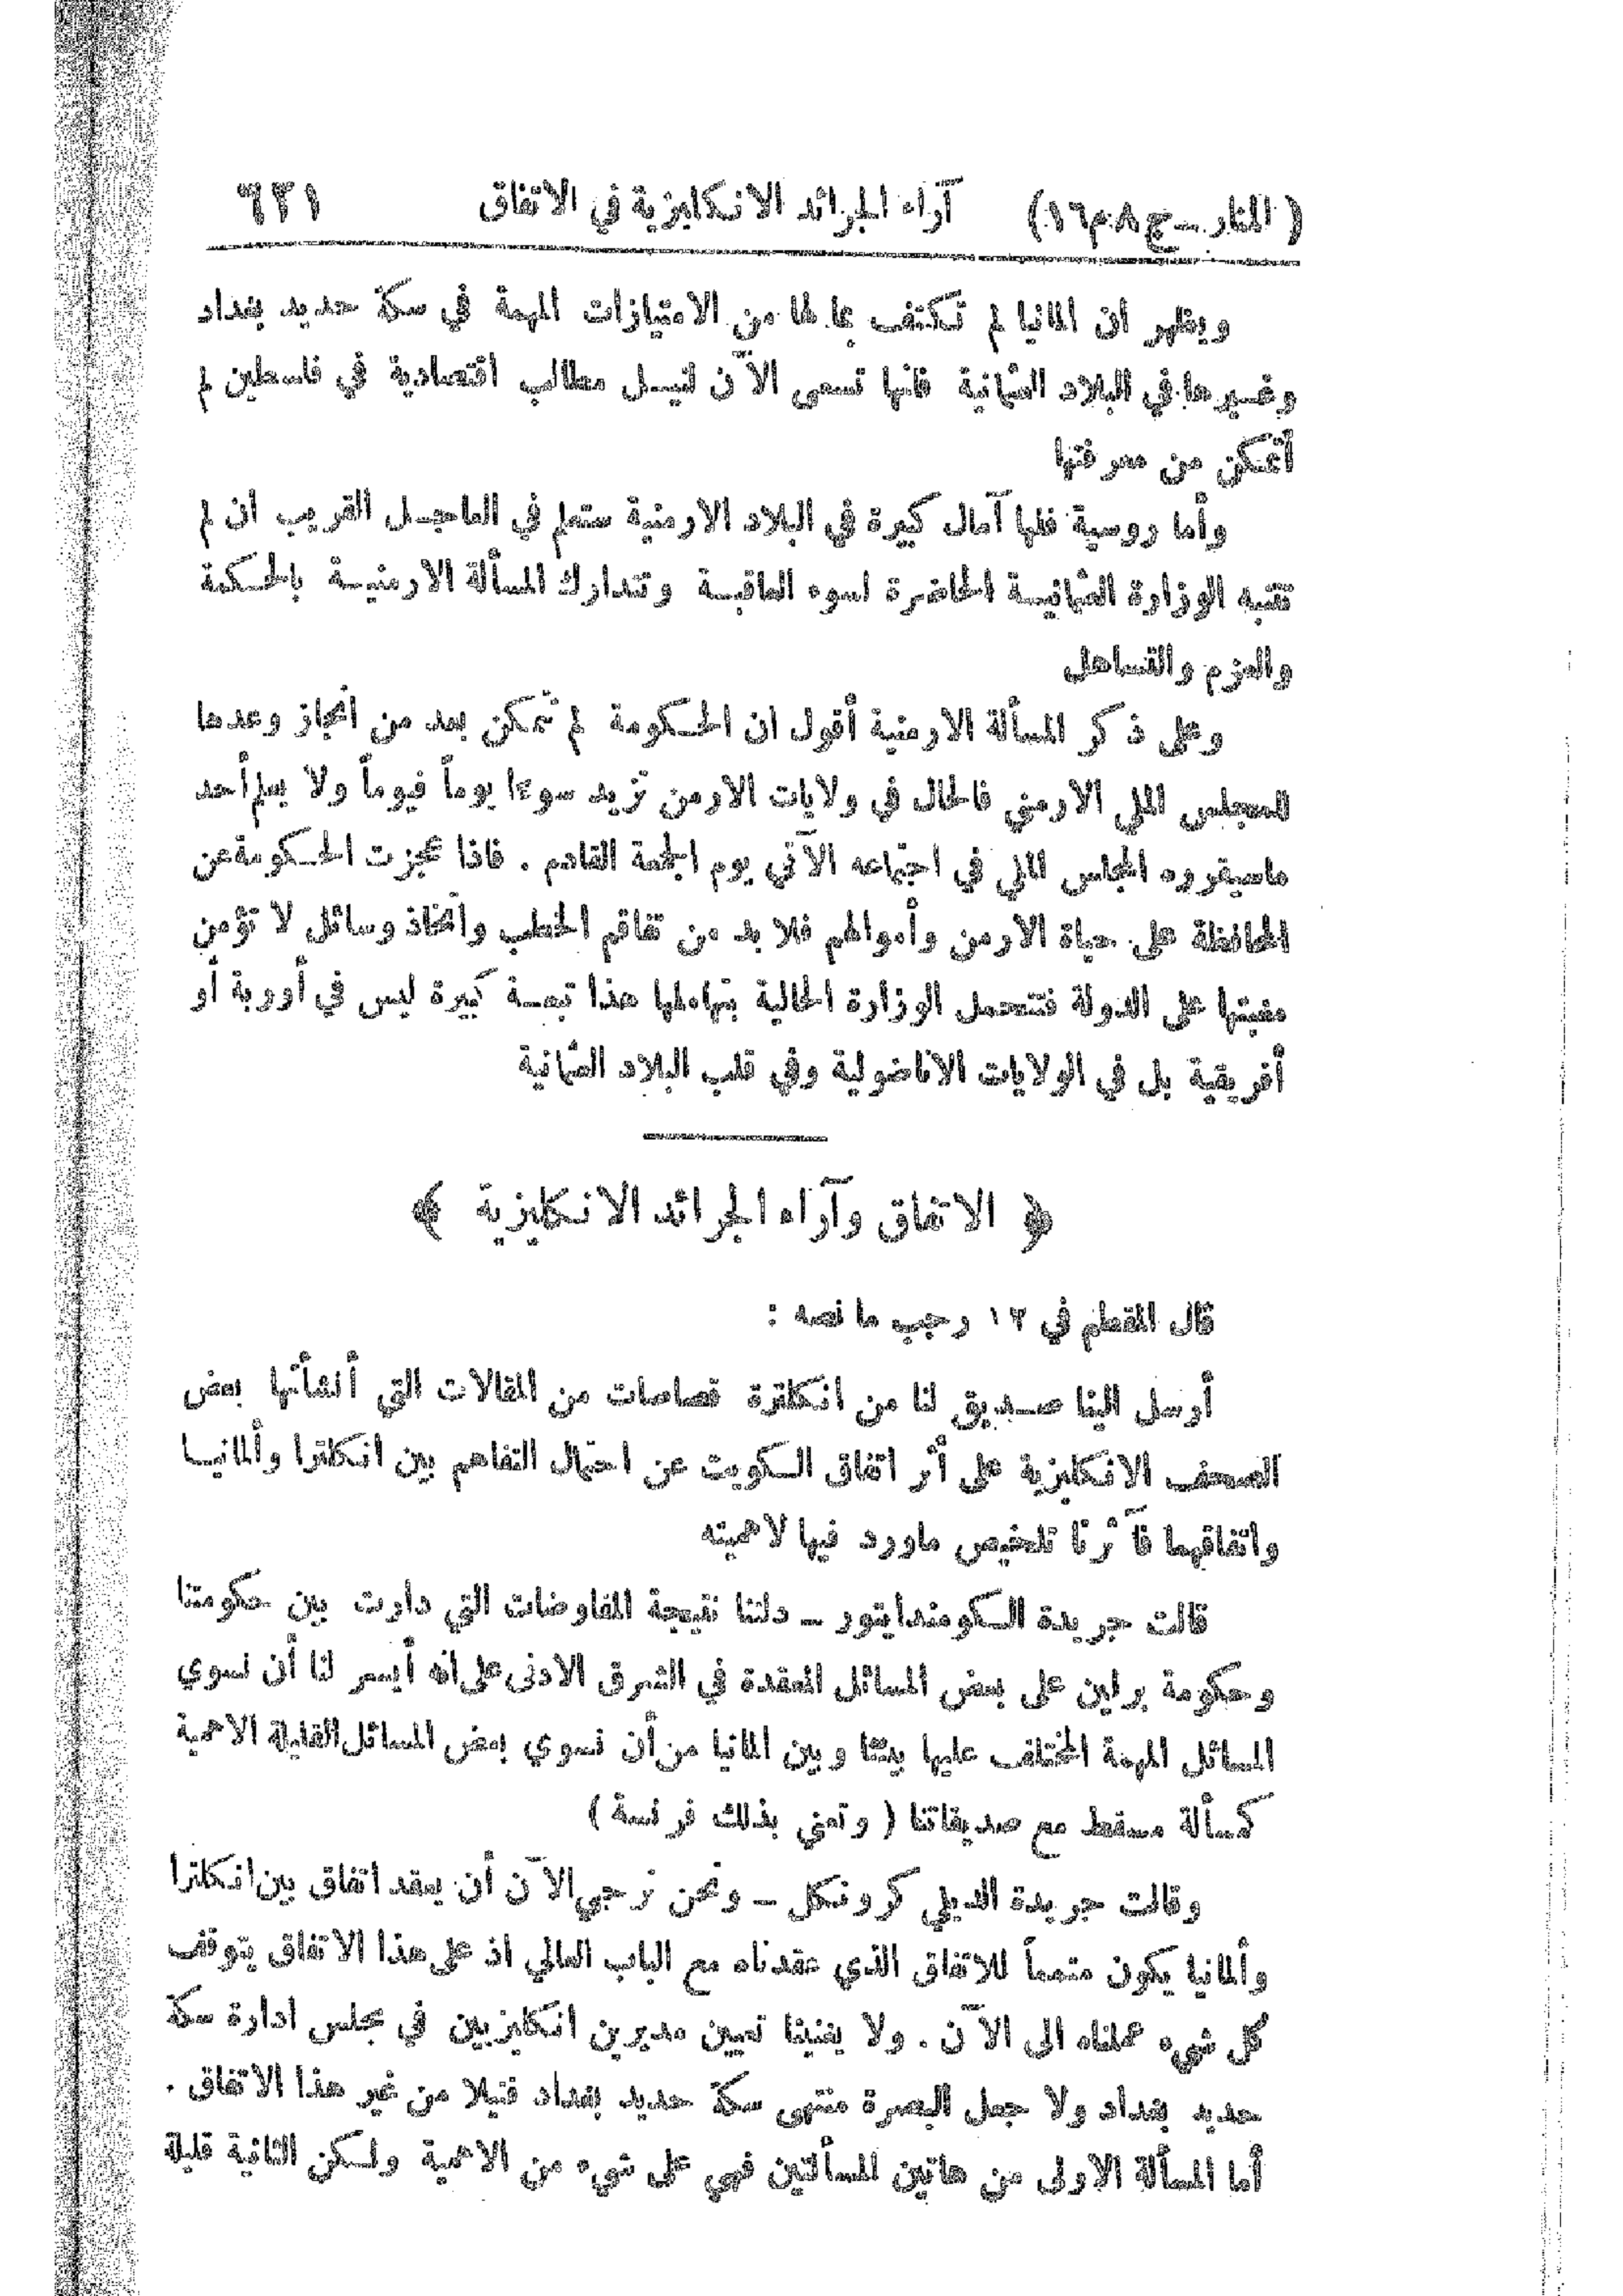 ( المنار ــ ج ٨ م ١٦ ) آراء الجرائد الانكليزية في الاتفاق ٦٢١
ويظهر ان المانيا لم تكتف بما لها من الامتيازات المهمة في سكة حديد بغداد
وغيرها في البلاد العثمانية فانها تسعى الآن لنيل مطالب اقتصادية في فلسطين لم
أتمكن من معرفتها
وأما روسية فلها آمال كبيرة في البلاد الارمنية ستعلم في العاجل القريب ان لم
تتنبه الوزارة العثمانية الحاضرة لسوء العاقبة وتتدارك المسألة الارمنية بالحكمة
والعزم والتساهل
وعلى ذكر المسألة الارمنية أقول ان الحكومة لم تتمكن بعد من انجاز وعدها
للمجلس الملي الارمني فالحال في ولايات الارمن تزيد سوءا يوماً فيوماً ولا يعلم أحد
ماسيقرره المجلس الملي في اجتماعه الآتي يوم الجمعة القادم . فاذا عجزت الحكومة عن
المحافظة على حياة الارمن وأموالهم فلا بد من تفاقم الخطب واتخاذ وسائل لا تؤمن
مغبتها على الدولة فتتحمل الوزارة الحالية بتهاملها هذا تبعة كبيرة ليس في أوربة أو
أفريقية بل في الولايات الاناضولية وفي قلب البلاد العثمانية
﴿ الاتفاق وآراء الجرائد الانكليزية ﴾
قال المقطم في ١٢ رجب ما نصه :
أرسل الينا صديق لنا من انكلترة قصاصات من المقالات التي أنشأتها بعض
الصحف الانكليزية على أثر اتفاق الكويت عن احتمال التفاهم بين انكلترا وألمانيا
واتفاقهما فآثرنا تلخيص ماورد فيها لاهميته
قالت جريدة الكومنداتيور ــ دلتنا نتيجة المفاوضات التي دارت بين حكومتنا
وحكومة برلين على بعض المسائل المعقدة في الشرق الادنى على انه أيسر لنا أن نسوي
المسائل المهمة المختلف عليها بيننا وبين المانيا من أن نسوي بعض المسائل القليلة الاهمية
كمسألة مسقط مع صديقاتنا ( وتعني بذلك فرنسة )
وقالت جريدة الديلي كرونكل ــ ونحن نرجي الآن أن يعقد اتفاق بين انكلترا
وألمانيا يكون متمماً للاتفاق الذي عقدناه مع الباب العالي اذ على هذا الاتفاق يتوقف
كل شيء عملناه الى الآن . ولا يغنينا تعيين مديرين انكليزيين في مجلس ادارة سكة
حديد بغداد ولا جعل البصرة منتهى سكة حديد بغداد فتيلا من غير هذا الاتفاق .
أما المسألة الاولى من هاتين المسألتين فهي على شيء من الاهمية ولكن الثانية قليلة